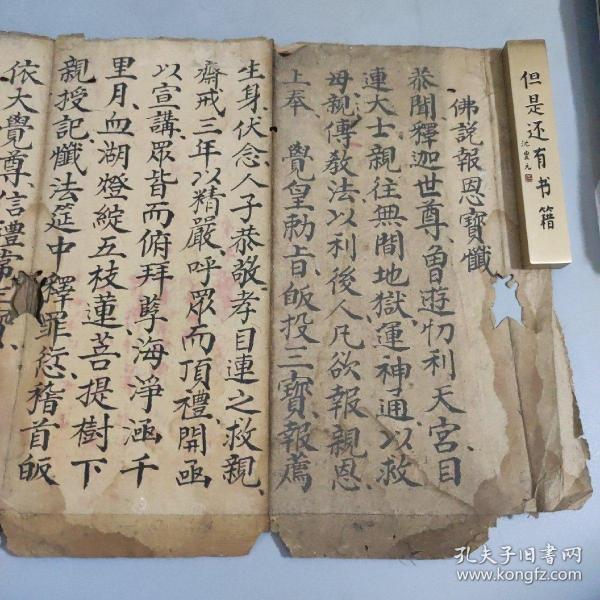 佛説報恩寶懺
恭聞釋迦世尊、曾遊忉利天宮、目
連大士親往無間地獄、運神通以救
母親、傳教法以利後人、凡欲報親恩、
上奉 覺皇勅旨皈投三寶、報薦
生身、伏念人子恭敬孝目連之救親、
齋戒三年以精嚴呼眾而頂禮、開函
以宣講眾皆而俯拜孽海淨涵千
里月、血湖燈綻五枝蓮菩提樹下
親授記、懺法筵中釋罪愆、稽首皈
依大覺尊、信禮常
但是还有书籍
沈燮元
孔夫子旧书网
www.kongfz.com